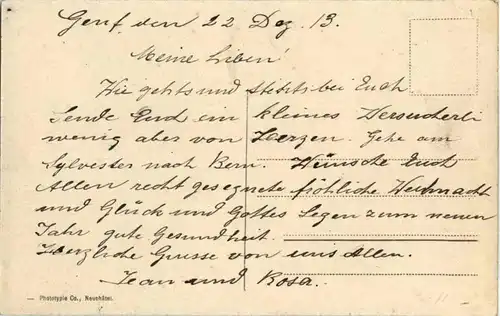 Genf, den 22 Dez. 13.
Meine Liben!
Wie gehts und stehts bei Euch
Sende Eud ein kleines Versucherli
wenig aber von Herzen. Gehe am
Sylvester nach Bern. Wünsche Euch
Allen recht gesegnete fröhliche Weihnacht
und Glück und Gottes Segen zum neuen
Jahr gute Gesundheit.
Herzliche Grüsse von uns Allen.
Jean und Rosa.
— Phototypie Co., Neuchâtel.